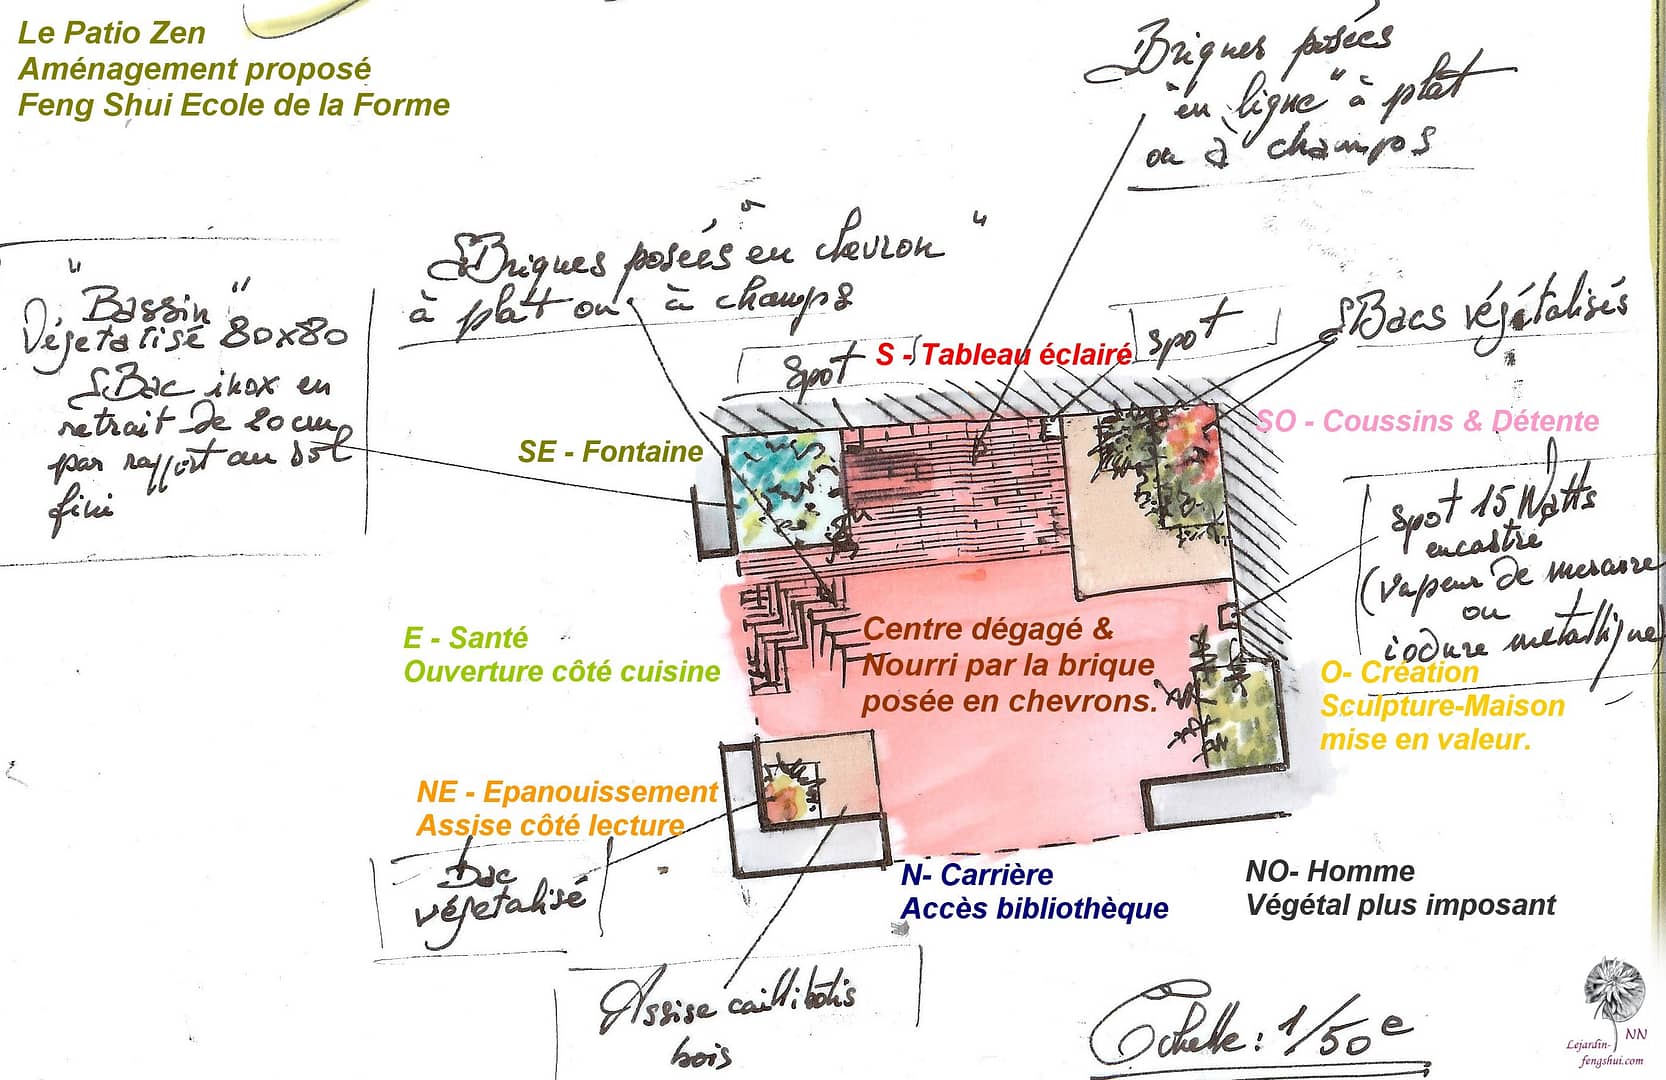 Le Patio Zen
Aménagement proposé
Feng Shui Ecole de la Forme
Briques posées
"en ligne" à plat
ou à champs
Briques posées "en chevron"
à plat ou à champs
"Bassin"
Végétalisé 80x80
Bac inox en
retrait de 20cm
par rapport au sol
fini
Spot
S - Tableau éclairé
Spot
Bacs végétalisés
SO - Coussins & Détente
SE - Fontaine
Spot 15 Watts
encastré
(vapeur de mercure
ou
iodure métallique)
E - Santé
Ouverture côté cuisine
Centre dégagé &
Nourri par la brique
posée en chevrons.
O- Création
Sculpture-Maison
mise en valeur.
NE - Epanouissement
Assise côté lecture
Bac
végétalisé
N- Carrière
Accès bibliothèque
NO- Homme
Végétal plus imposant
Assise caillibotis
bois
Echelle : 1/50e
NN
Lejardin-
fengshui.com